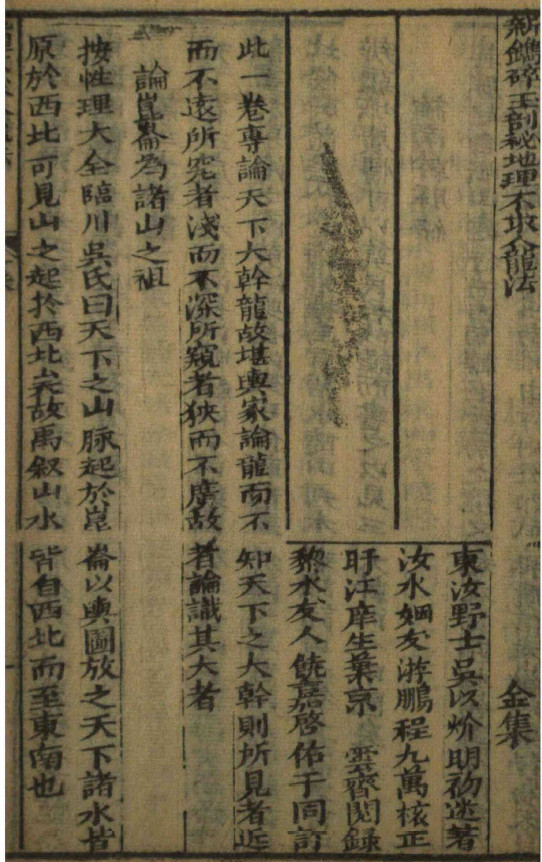 新鐫碎玉剖秘地理不求人龍法　金集
東汝野士吳以炌明礽述著
汝水姻友游鵬程九萬核正
盱江庠生葉京　雲齋閱錄
黎水友人饒嘉啓佑于同訂
此一卷專論天下大幹龍故堪輿家論龍而不知天下之大幹則所見者近
而不遠所究者淺而不深所窺者狹而不廣故者論識其大者
論崑崙為諸山之祖
按性理大全臨川吳氏曰天下之山脉起於崑崙以輿圖放之天下諸水皆
原於西北可見山之起於西北矣故禹叙山水皆自西北而至東南也